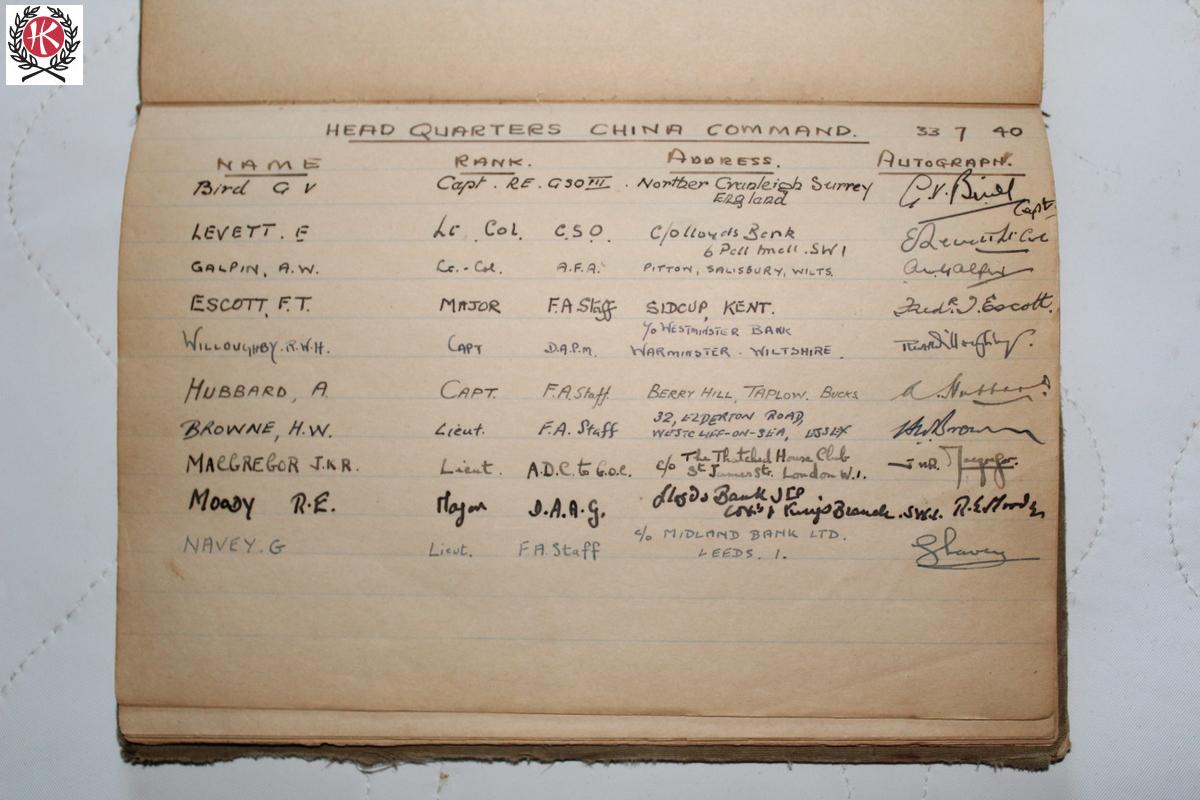 HK
HEAD QUARTERS CHINA COMMAND. 33 7 40
NAME RANK. ADDRESS. AUTOGRAPH.
Bird G V Capt. RE. GSO III. Norther Cranleigh Surrey G.V. Bird
England Capt.
LEVETT. E Lt. Col. C.S.O. C/o Lloyds Bank E Levett Lt Col
6 Pall Mall. SW1
GALPIN, A.W. Lt.-Col. A.F.A. PITTON, SALISBURY, WILTS. A W Galpin
ESCOTT, F.T. MAJOR F.A Staff SIDCUP, KENT. Fredk. T. Escott.
c/o WESTMINSTER BANK
WILLOUGHBY. R.W.H. CAPT D.A.P.M. WARMINSTER. WILTSHIRE. Willoughby.
HUBBARD, A CAPT. F.A. Staff. BERRY HILL, TAPLOW. BUCKS A. Hubbard
32, ELDERTON ROAD,
BROWNE, H.W. Lieut. F.A. Staff WESTCLIFF-ON-SEA, ESSEX H.W. Browne
MACGREGOR J.K.R. Lieut. A.D.C. to G.O.C. c/o The Thatched House Club J.K.R. Macgregor.
St James St. London W.1.
MOODY R.E. Major D.A.A.G. Lloyds Bank R.E. Moody
King's Branch. S.W.1.
c/o MIDLAND BANK LTD.
NAVEY. G Lieut. F.A. Staff LEEDS. 1. G Navey